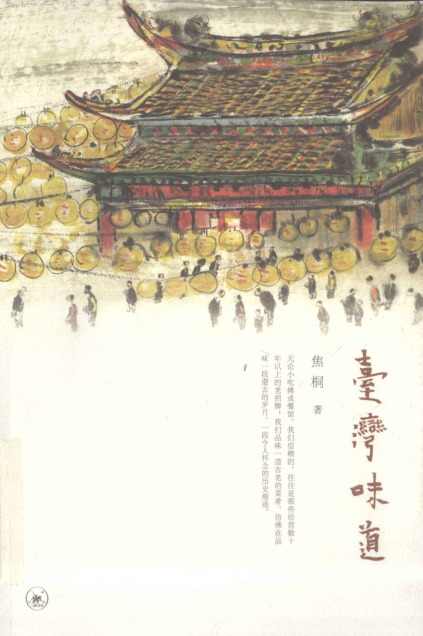 臺灣味道
焦桐 著
无论小吃摊或餐馆，我们信赖的，往往是那些经营数十
年以上的老招牌，我们品味一道古老的菜肴，仿佛在品
味一段逝去的岁月，一段令人怀念的历史痕迹。